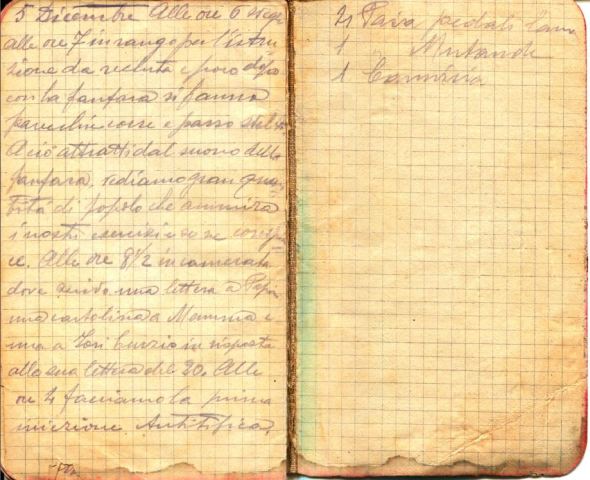 5 Dicembre Alle ore 6 sveglia
alle ore 7 in rango per l'istru
zione da recluta e poco dopo
con la fanfara si fanno
parecchie corse e passo
A ciò attratti dal suono della
fanfara, vediamo gran quan
tità di popolo che ammira
i nostri esercizi e se ne
ce. Alle ore 8½ in camerata
dove scrivo una lettera a Papà
una cartolina a Mamma e
una a in risposta
alla sua lettera del 20. Alle
ore 4 facciamo la prima
iniezione Antitifica.
2 Paia pedali lana
1 " Mutande
1 Camicia